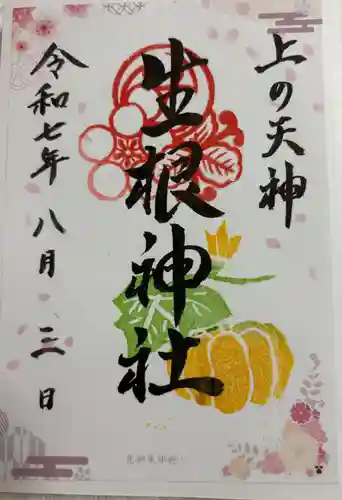 上の天神
生根神社
令和七年 八月 三日